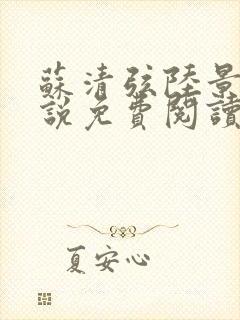 蘇清弦陸景
說免費閱讀
夏安心